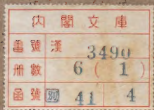 內閣文庫
番號 漢 3490
冊數 6(1)
函號 41 4